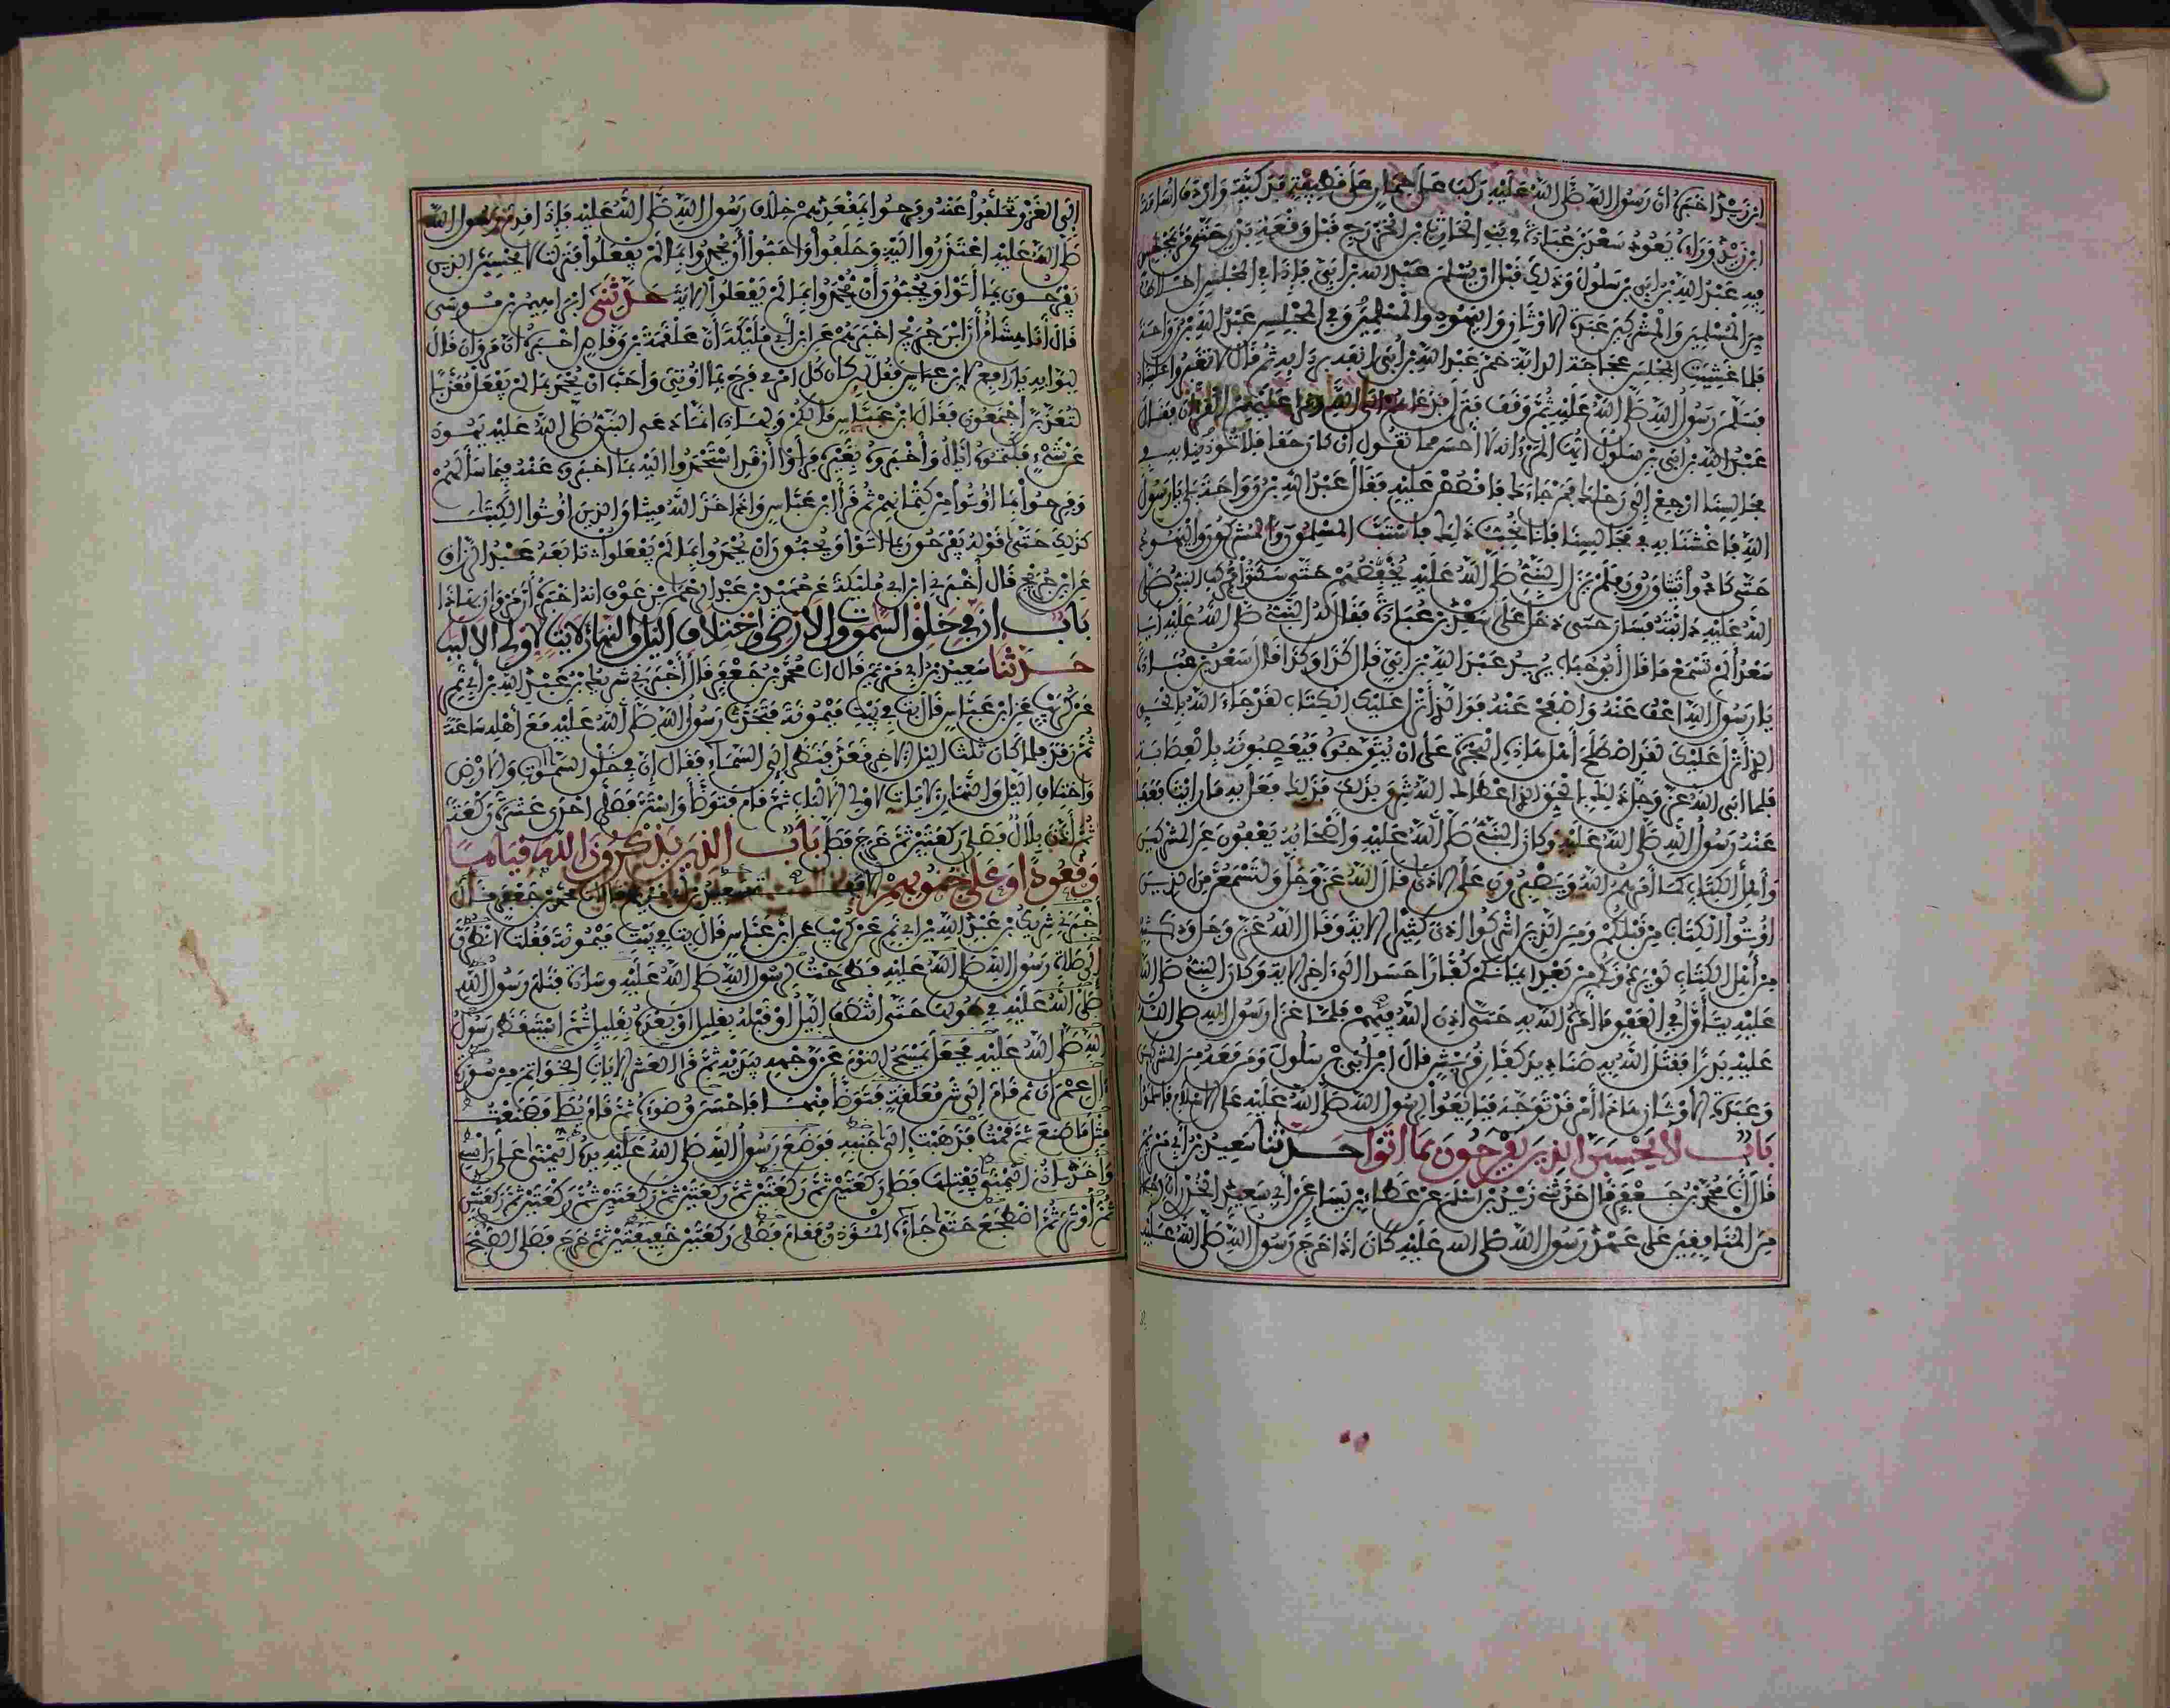 ابن زيد أخبره أن رسول الله صلى الله عليه ركب على حمار على قطيفة فدكية وأردف أسامة
ابن زيد وراءه يعود سعد بن عبادة في بني الحارث بن الخزرج قبل وقعة بدر حتى مر بمجلس
فيه عبد الله بن أبي بن سلول وذلك قبل أن يسلم عبد الله بن أبي فإذا في المجلس أخلاط
من المسلمين والمشركين عبدة الأوثان واليهود والمسلمين وفي المجلس عبد الله بن رواحة
فلما غشيت المجلس عجاجة الدابة خمر عبد الله بن أبي أنفه بردائه ثم قال لا تغبروا علينا
فسلم رسول الله صلى الله عليه ثم وقف فنزل فدعاهم إلى الله وقرأ عليهم القرآن فقال
عبد الله بن أبي بن سلول أيها المرء إنه لا أحسن مما تقول إن كان حقا فلا تؤذينا به في
مجالسنا ارجع إلى رحلك فمن جاءك فاقصص عليه فقال عبد الله بن رواحة بلى يا رسول
الله فاغشنا به في مجالسنا فإنا نحب ذلك فاستب المسلمون والمشركون واليهود
حتى كادوا يتثاورون فلم يزل النبي صلى الله عليه يخفضهم حتى سكتوا ثم ركب النبي صلى
الله عليه دابته فسار حتى دخل على سعد بن عبادة فقال له النبي صلى الله عليه أيا
سعد ألم تسمع ما قال أبو حباب يريد عبد الله بن أبي قال كذا وكذا قال سعد بن عبادة
يا رسول الله اعف عنه واصفح عنه فوالذي أنزل عليك الكتاب لقد جاء الله بالحق
الذي أنزل عليك لقد اصطلح أهل هذه البحيرة على أن يتوجوه فيعصبونه بالعصابة
فلما أبى الله عز وجل ذلك بالحق الذي أعطاك الله شرق بذلك فذلك فعل به ما رأيت فعفا
عنه رسول الله صلى الله عليه وكان النبي صلى الله عليه وأصحابه يعفون عن المشركين
وأهل الكتاب كما أمرهم الله ويصبرون على الأذى قال الله عز وجل ولتسمعن من الذين
أوتوا الكتاب من قبلكم ومن الذين أشركوا أذى كثيرا الآية وقال الله عز وجل ود كثير
من أهل الكتاب لو يردونكم من بعد إيمانكم كفارا حسدا إلى آخر الآية وكان النبي صلى الله
عليه يتأول في العفو ما أمره الله به حتى أذن الله فيهم فلما غزا رسول الله صلى الله
عليه بدرا فقتل الله به صناديد كفار قريش قال ابن أبي بن سلول ومن معه من المشركين
وعبدة الأوثان هذا أمر قد توجه فبايعوا لرسول الله صلى الله عليه على الإسلام فأسلموا
باب لا يحسبن الذين يفرحون بما أتوا حدثنا سعيد بن أبي مريم
قال أنا محمد بن جعفر قال حدثني زيد بن أسلم عن عطاء بن يسار عن أبي سعيد الخدري أن رجالا
من المنافقين على عهد رسول الله صلى الله عليه كان إذا خرج رسول الله صلى الله عليه
إلى الغزو تخلفوا عنه وفرحوا بمقعدهم خلاف رسول الله صلى الله عليه فإذا قدم رسول الله
صلى الله عليه اعتذروا إليه وحلفوا وأحبوا أن يحمدوا بما لم يفعلوا فنزلت لا يحسبن الذين
يفرحون بما أتوا ويحبون أن يحمدوا بما لم يفعلوا الآية حدثني إبراهيم بن موسى
قال أنا هشام أن ابن جريج أخبرهم عن ابن أبي مليكة أن علقمة بن وقاص أخبره أن مروان قال
لبوابه يا رافع لابن عباس فقل لئن كان كل امرئ فرح بما أوتي وأحب أن يحمد بما لم يفعل معذبا
لنعذبن أجمعون فقال ابن عباس ما لكم ولهذه إنما دعى النبي صلى الله عليه يهود
عن شيء فكتموه إياه وأخبروه بغيره فرأوا أن قد استحمدوا إليه بما أخبروه عنه فيما سألهم
وفرحوا بما أوتوا من كتمانهم ثم قرأ ابن عباس وإذ أخذ الله ميثاق الذين أوتوا الكتاب
كذلك حتى قوله يفرحون بما أتوا ويحبون أن يحمدوا بما لم يفعلوا تابعه عبد الرزاق
عن ابن جريج قال أخبرني ابن أبي مليكة عن حميد بن عبد الرحمن بن عوف أنه أخبره أن مروان بهذا
باب إن في خلق السموت والأرض واختلاف اليل والنهار لأيت لأولى الألباب
حدثنا سعيد بن أبي مريم قال أنا محمد بن جعفر قال أخبرني شريك بن عبد الله بن أبي نمر
عن كريب عن ابن عباس قال بت في بيت ميمونة فتحدث رسول الله صلى الله عليه مع أهله ساعة
ثم رقد فلما كان ثلث الليل الآخر قعد فنظر إلى السماء فقال إن في خلق السموات والأرض
واختلاف الليل والنهار لآيات لأولي الألباب ثم قام فتوضأ واستن فصلى إحدى عشرة ركعة
ثم أذن بلال فصلى ركعتين ثم خرج فصلى باب الذين يذكرون الله قياما
وقعودا وعلى جنوبهم الآية سعيد بن أبي مريم قال أنا محمد بن جعفر قال
أخبرني شريك بن عبد الله بن أبي نمر عن كريب عن ابن عباس قال بت في بيت ميمونة فقلت لأنظرن
إلى صلاة رسول الله صلى الله عليه فطرحت لرسول الله صلى الله عليه وسادة فنام رسول الله
صلى الله عليه في طولها حتى انتصف الليل أو قبله بقليل أو بعده بقليل ثم استيقظ رسول
الله صلى الله عليه فجعل يمسح النوم عن وجهه بيديه ثم قرأ العشر الآيات الخواتم من سورة
آل عمران ثم قام إلى شن معلقة فتوضأ منها فأحسن وضوءه ثم قام يصلي فصنعت
مثل ما صنع ثم قمت فذهبت إلى جنبه فوضع رسول الله صلى الله عليه يده اليمنى على رأسي
وأخذ بأذني اليمنى يفتلها فصلى ركعتين ثم ركعتين ثم ركعتين ثم ركعتين ثم ركعتين ثم ركعتين
ثم أوتر ثم اضطجع حتى جاءه المؤذن فقام فصلى ركعتين خفيفتين ثم خرج فصلى الصبح